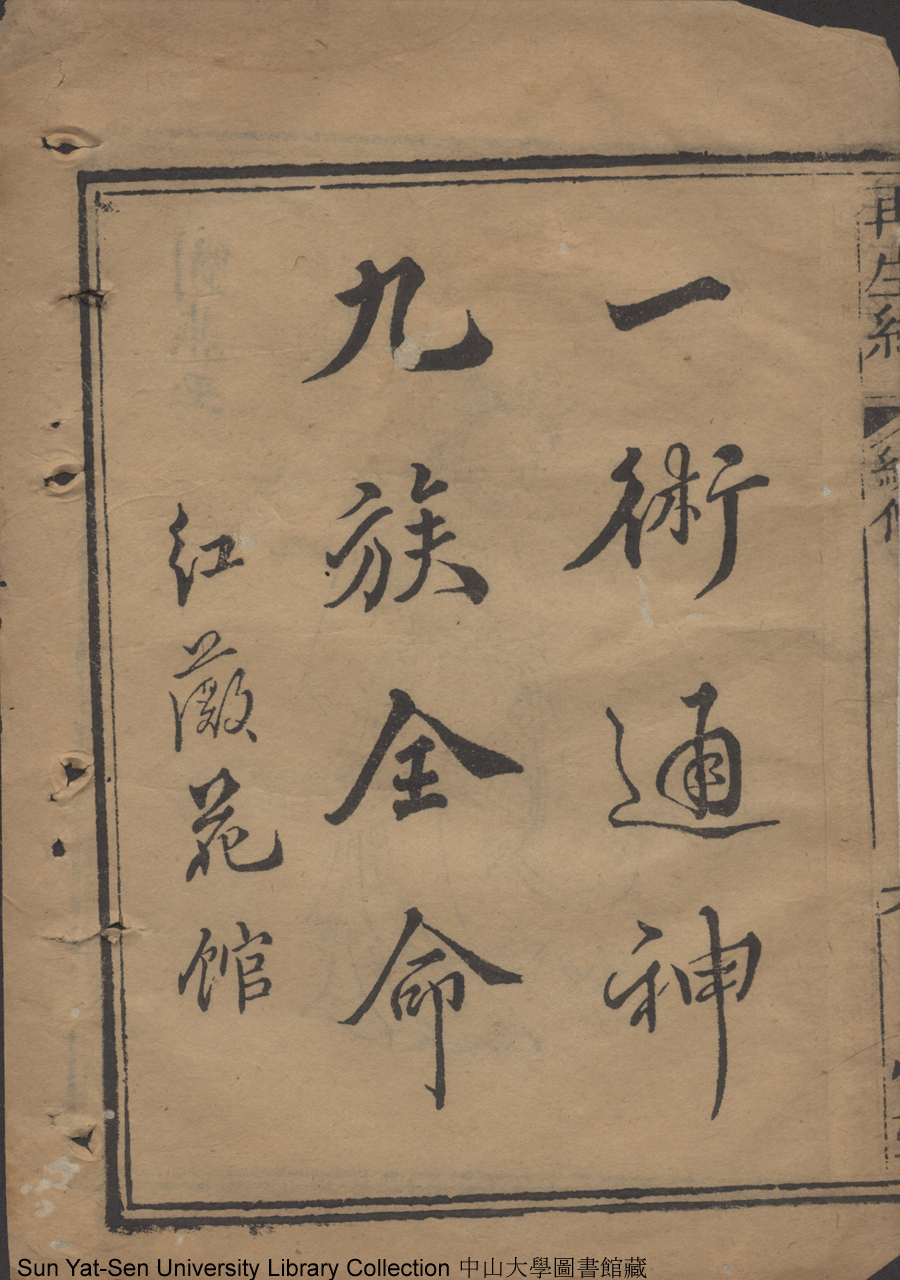 再生緣
一術通神
九族全命
紅薇苑館
Sun Yat-Sen University Library Collection 中山大學圖書館藏